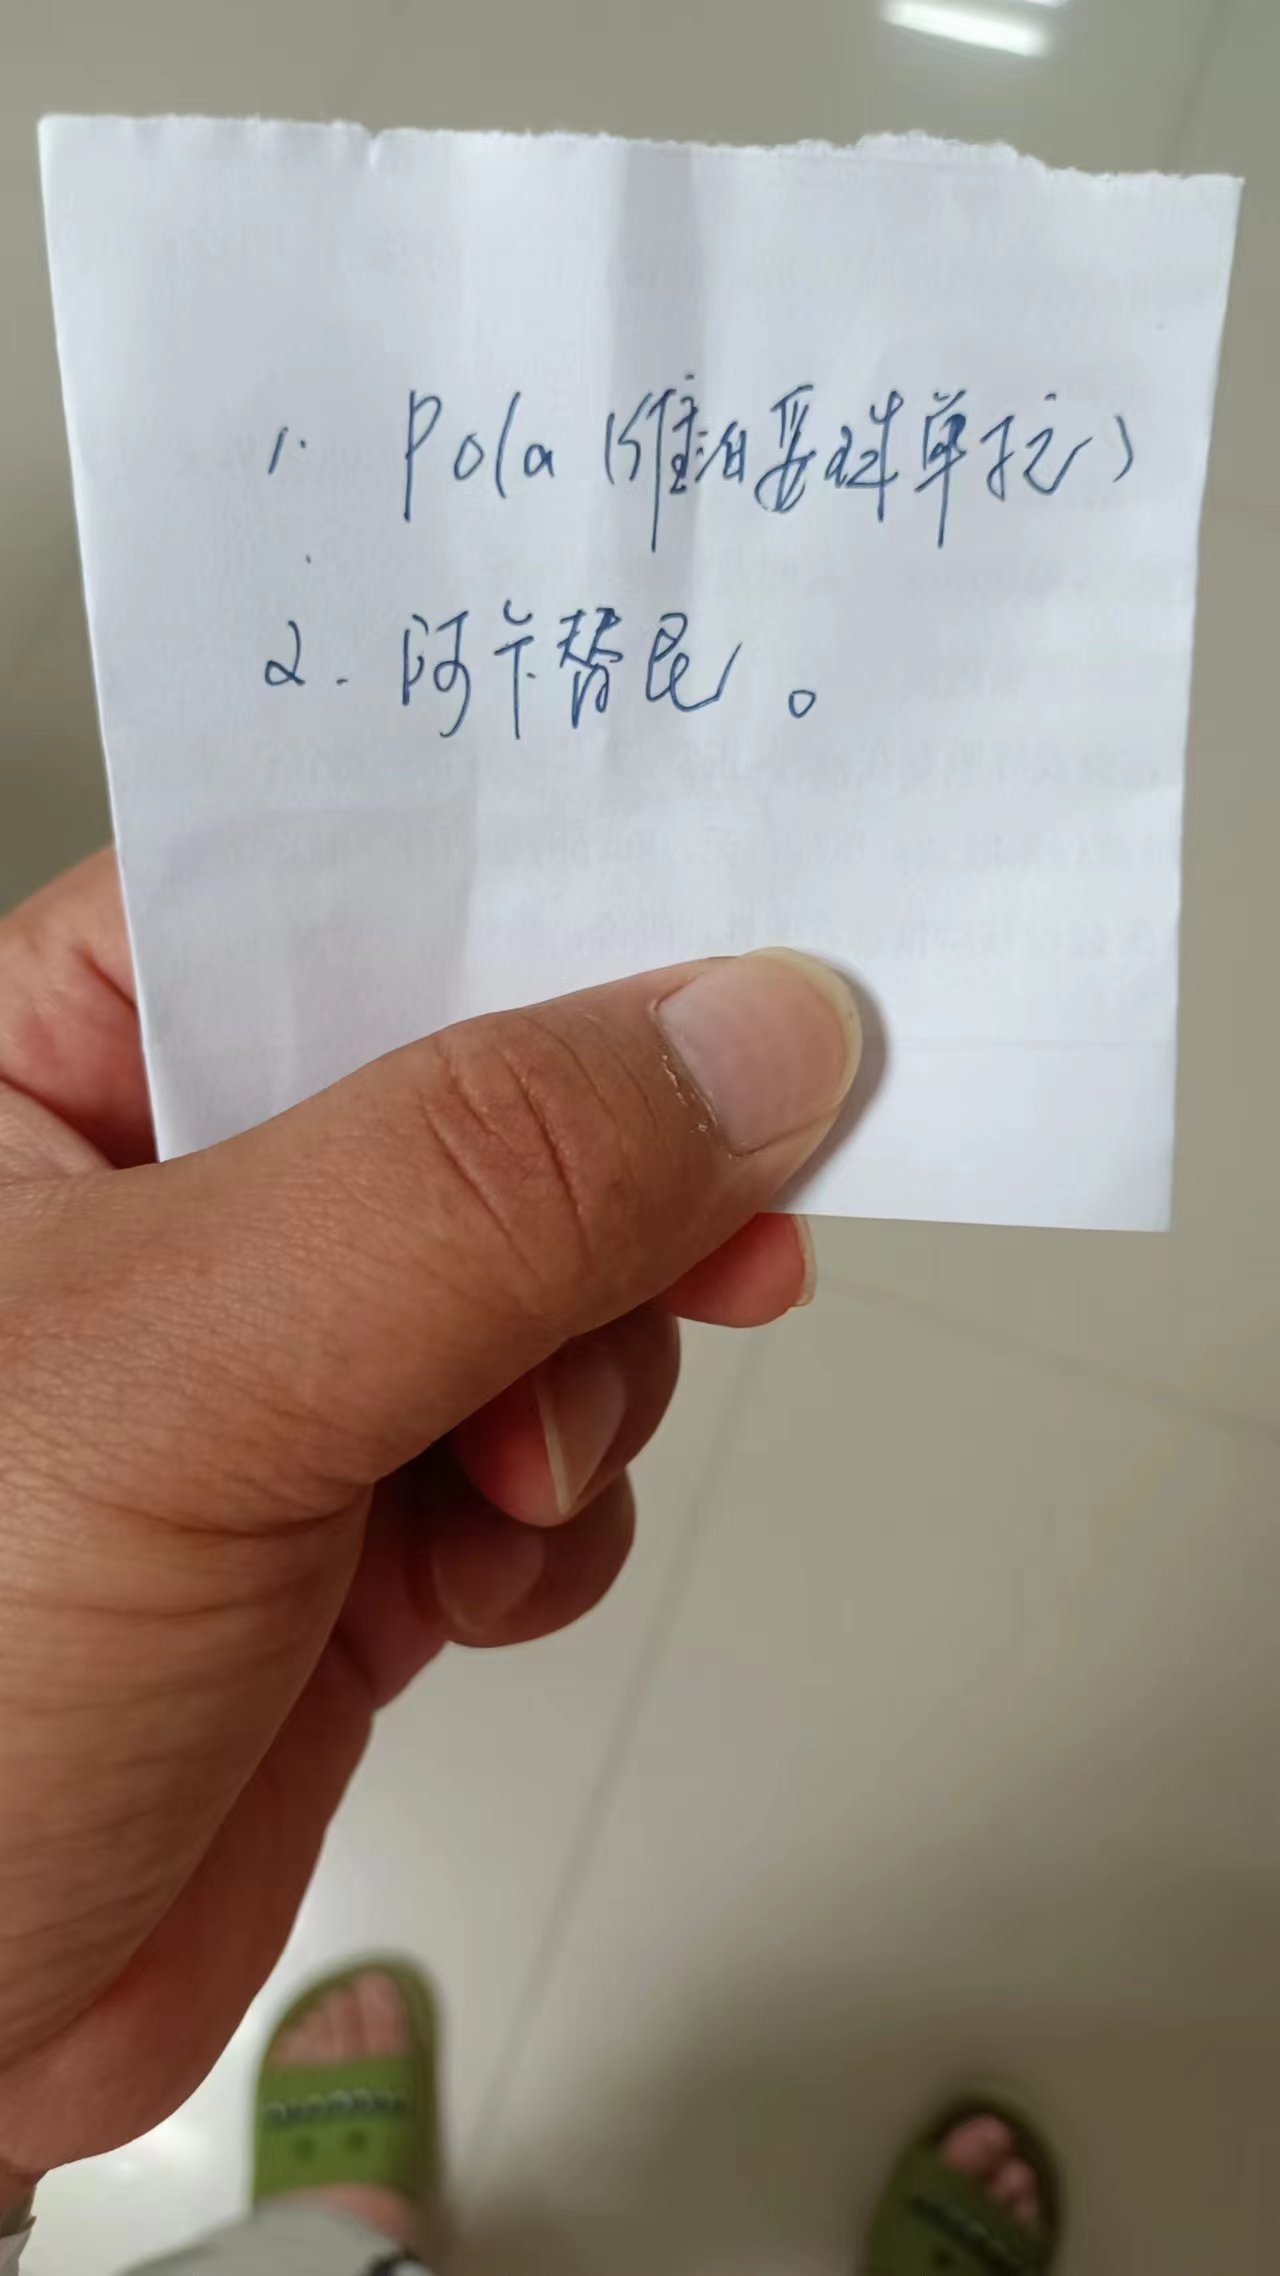 1. Pola (维泊妥珠单抗)
2. 阿卡替尼。